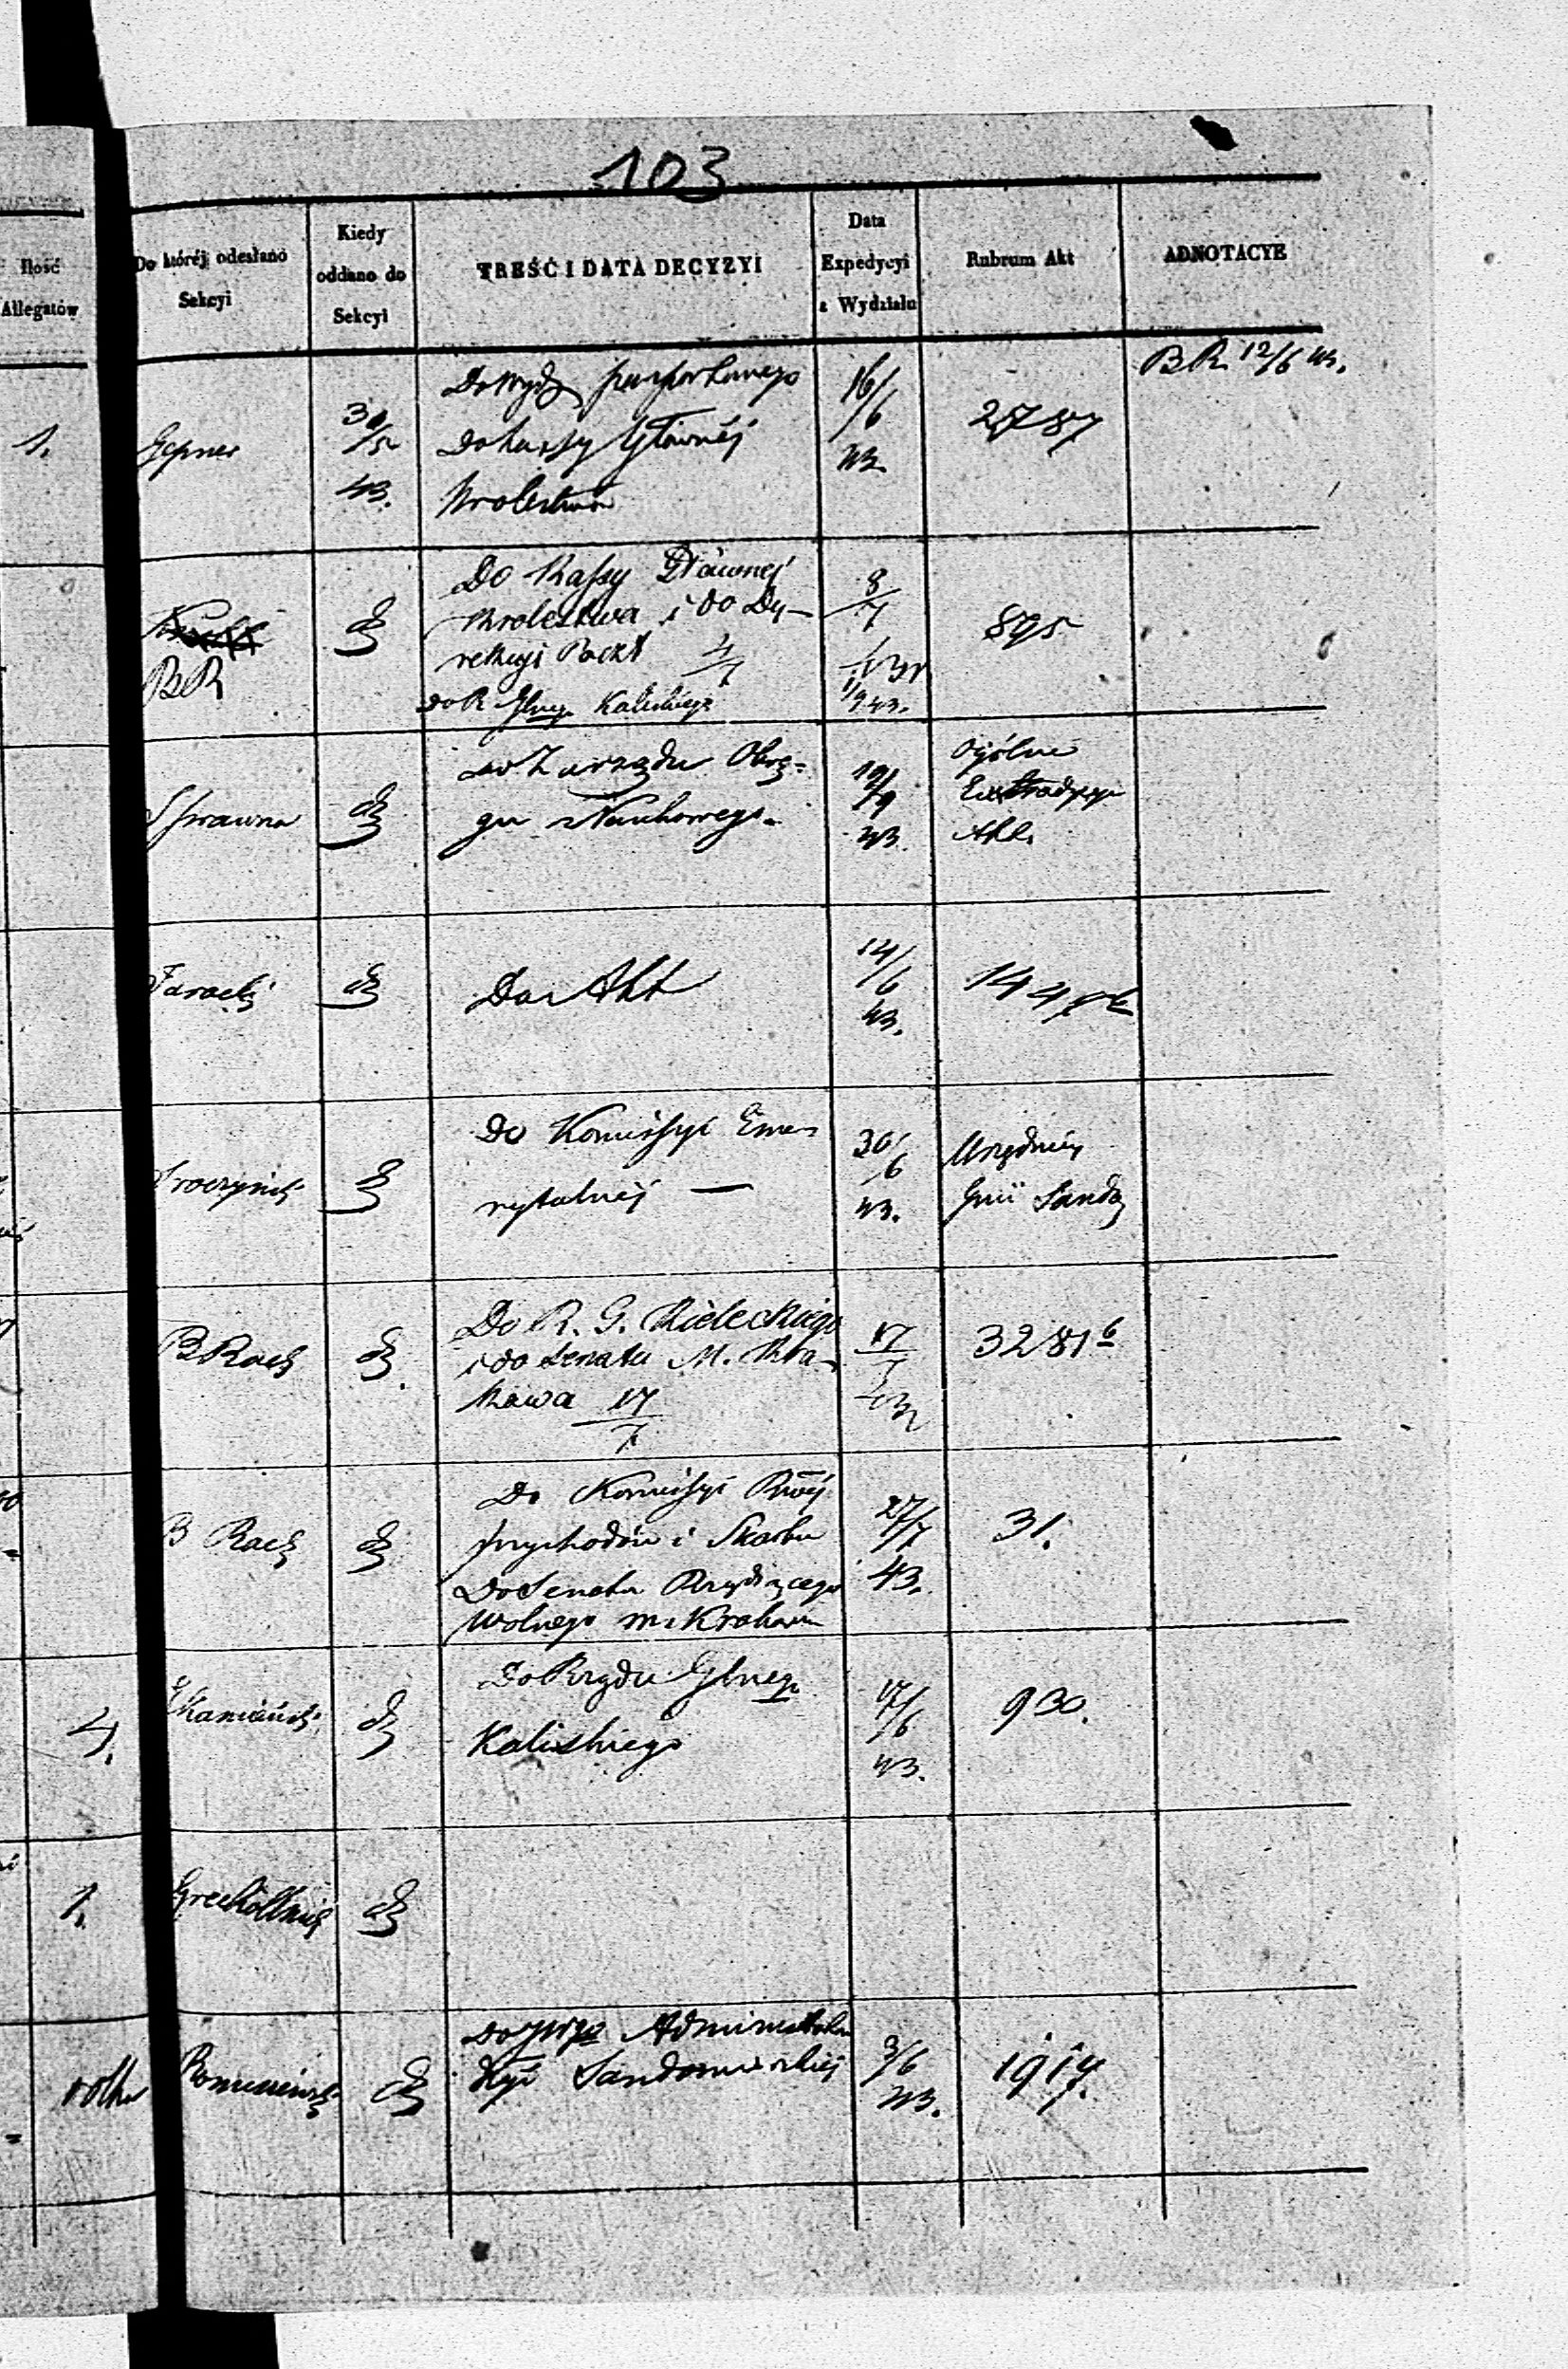 103
Ilość
Allegatów
Do któréj odesłano
Sekcyi
Kiedy
oddano do
Sekcyi
TREŚĆ I DATA DECYZYI
Data
Expedycyi
z Wydziału
Rubrum Akt
ADNOTACYE
1.
Gepner
30/5
43.
Do Wydz paszportowego
Do Kassy Głównéj
Krolestwa
16/6
43
2787
BR 12/6 43.
BR
dt
Do Kassy Głównej
Krolestwa i do Dy-
rekcyi Poczt 4/7
Do R Glneg Kaliskiego
8/7
43
1/9 43.
895
Sprawna
dt
Do Zarządu Okrę=
gu Naukowego.
19/9
43
Ogólne
Akt.
dt
Do Akt
14/6
43.
dt
Do Komissyi Eme
rytalnéj —
30/6
43.
Urzędnicy
Gnii Sando
B Rach
dt.
Do R. G. Kieleckiego
i do Senatu M. Kra-
kowa 17/7
17/7
43
3281 6
B Rach
dt
Do Komissyi Rwéj
przychodów i Skarbu
Do Senatu Rządzącego
Wolnego m. Krakowa
27/7
43.
31.
4.
dt
Do Rządu Glnego
Kaliskiego
17/6
43.
930.
1.
dt
dt
Do JWgo Administratora
Dyi Sandomierskiej
3/6
43.
1914.